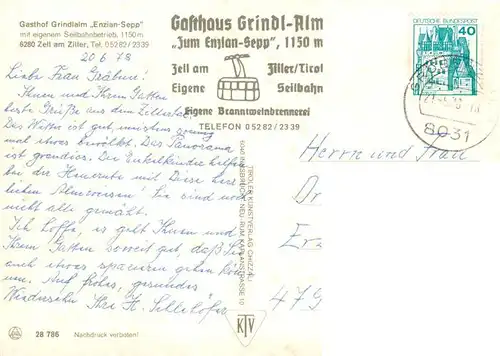 Gasthof Grindlalm „Enzian-Sepp"
mit eigenem Seilbahnbetrieb, 1150 m
6280 Zell am Ziller, Tel. 0 52 82 / 23 39
Gasthaus Grindl-Alm
„Zum Enzian-Sepp", 1150 m
Zell am Ziller/Tirol
Eigene Seilbahn
Eigene Branntweinbrennerei
TELEFON 0 52 82 / 23 39
DEUTSCHE BUNDESPOST
40
8031
20 6 78
Liebe Frau Gräbner!
Ihnen und Ihrem Gatten
beste Grüße aus dem Zillertal.
Das Wetter ist gut, wenn
mal etwas bewölkt. Das Panorama
ist grandios. Die Enkelkinder helfen
bei der Heuernte mit. Diese herr-
lichen Almwiesen! Sie sind noch
nicht alle gemäht.
Ich hoffe, es geht Ihnen und
Ihrem Gatten soweit gut, daß Sie
auch etwas spazieren gehen kön-
nen. Auf frohes, gesundes
Wiedersehn Ihre H.
Herrn und Frau
Dr
Er
479
TIROLER KUNSTVERLAG CHIZZALI
6040 INNSBRUCK NEU-RUM, KAPLANSTRASSE 10
KTV
28 786 Nachdruck verboten!